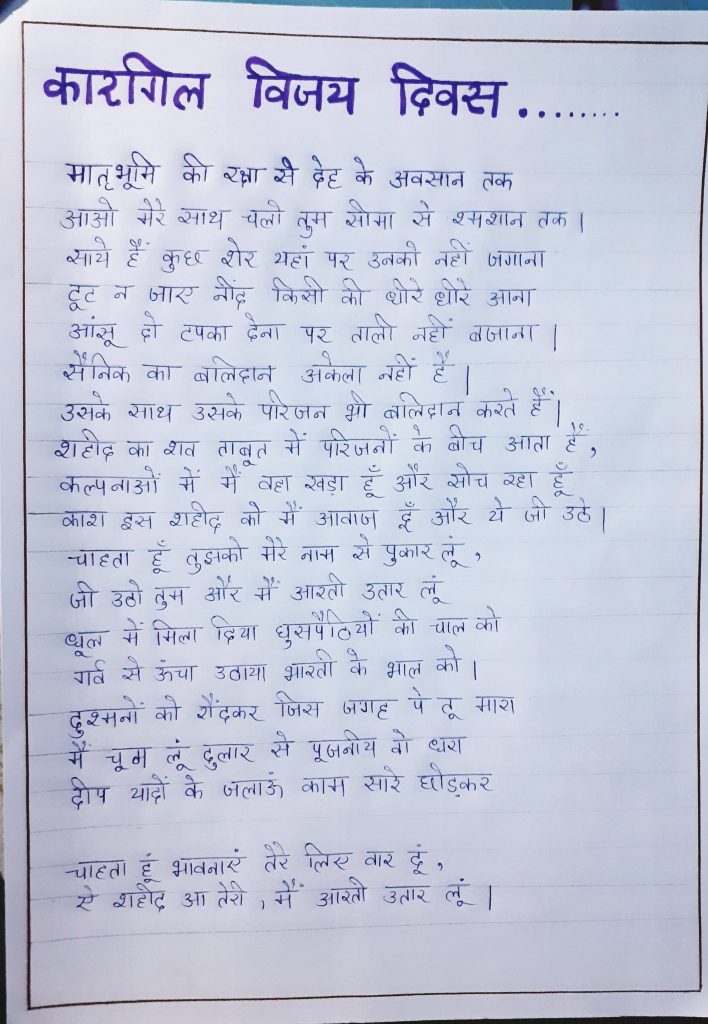 कारगिल विजय दिवस ........
मातृभूमि की रक्षा से देह के अवसान तक
आओ मेरे साथ चलो तुम सीमा से श्मशान तक।
साये हैं कुछ शेर यहां पर उनको नहीं जगाना
टूट न जाए नींद किसी की धीरे धीरे आना
आंसू दो टपका देना पर ताली नहीं बजाना।
सैनिक का बलिदान अकेला नहीं हैं।
उसके साथ उसके परिजन भी बलिदान करते हैं।
शहीद का शव ताबूत में परिजनों के बीच आता हैं,
कल्पनाओं में मैं वहा खड़ा हूँ और सोच रहा हूँ
काश इस शहीद को मैं आवाज दूँ और ये जी उठे।
चाहता हूँ तुझको मेरे नाम से पुकार लूं,
जी उठो तुम और मैं आरती उतार लूं
धूल में मिला दिया घुसपैठियों की चाल को
गर्व से ऊंचा उठाया भारती के भाल को।
दुश्मनों को रौंदकर जिस जगह पे तू मारा
मैं चूम लूं दुलार से पूजनीय वो धरा
दीप यादों के जलाऊं काम सारे छोड़कर
चाहता हूं भावनाएं तेरे लिए वार दूं,
ऐ शहीद आ तेरी, मैं आरती उतार लूं।